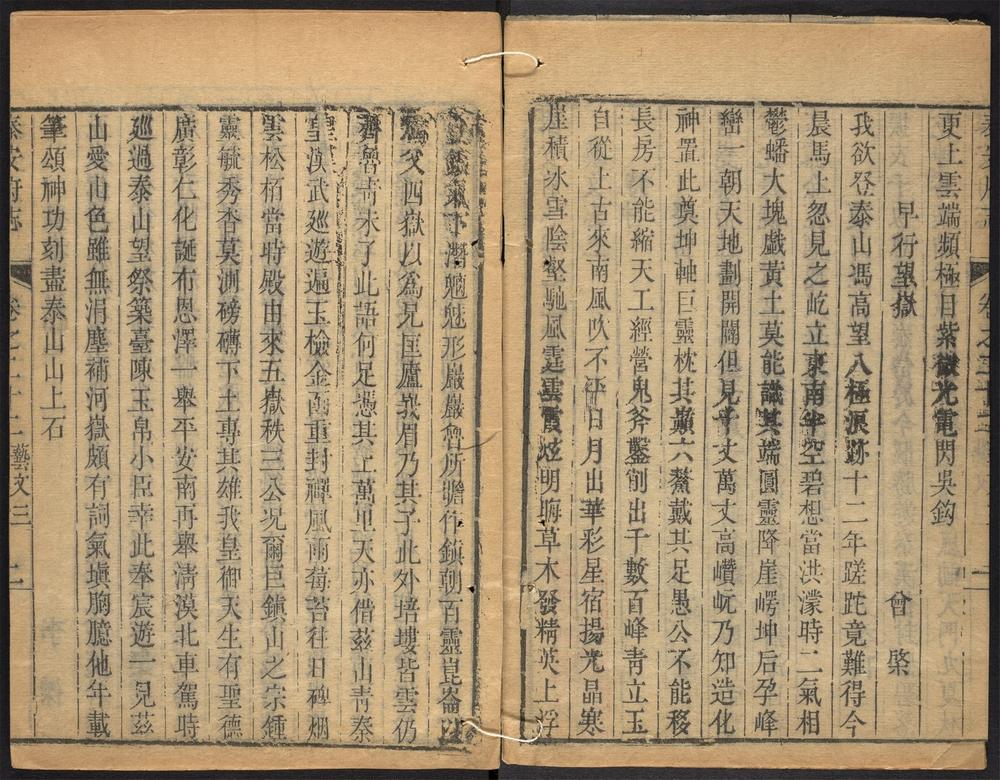 更上雲端頻極目紫微光電閃吳鈎
早行望嶽 曾棨
我欲登泰山馮高望八極浪跡十二年蹉跎竟難得今
晨馬上忽見之屹立東南半空碧想當洪濛時二氣相
鬱蟠大塊戲黃土莫能識其端圓靈降崖崿坤后孕峰
巒一朝天地劃開闢但見千丈萬丈高巑岏乃知造化
神置此奠坤軸巨靈枕其巔六鰲戴其足愚公不能移
長房不能縮天工經營鬼斧鑿削出千數百峰靑立玉
自從上古來南風吹不平日月出華彩星宿揚光晶寒
崖積冰雪陰壑馳風霆雲霞炫明晦草木發精英上浮
魑魅形巖巖魯所瞻作鎮朝百靈崑崙
父四嶽以爲兄匡廬峩眉乃其子此外培塿皆雲仍
齊魯靑未了此語何足憑其上萬里天亦借茲山靑秦
皇漢武廵遊遍玉檢金函重封禪風雨莓苔往日碑烟
雲松栢當時殿由來五嶽秩三公况爾巨鎮山之宗鍾
靈毓秀杳莫測磅礴下土專其雄我皇御天生有聖德
廣彰仁化誕布恩澤一舉平安南再舉淸漠北車駕時
廵過泰山望祭築臺陳玉帛小臣幸此奉宸遊一見茲
山愛山色雖無涓塵補河嶽頗有詞氣塡胸臆他年載
筆頌神功刻盡泰山山上石
泰安府志 卷之二十二 藝文三 二